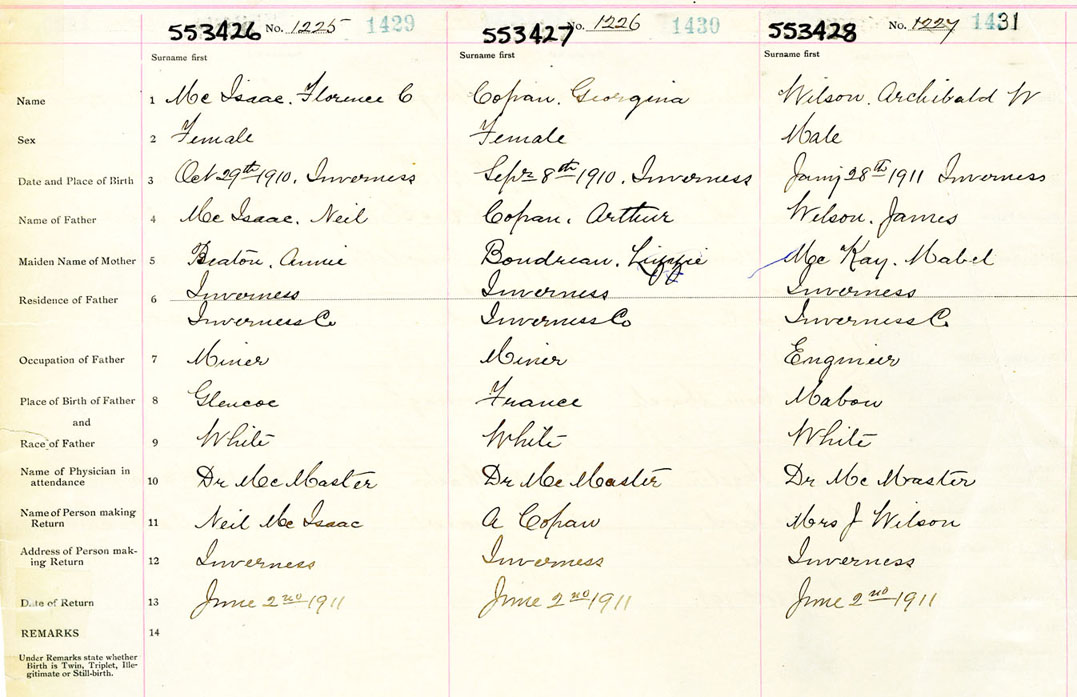 553426 No. 1225 1429 553427 No. 1226 1430 553428 No. 1227 1431
Surname first Surname first Surname first
Name 1 Mc Isaac. Florence C Copan. Georgina Wilson. Archibald W
Sex 2 Female Female Male
Date and Place of Birth 3 Oct 29th 1910. Inverness Sepr 8th 1910. Inverness 28th 1911 Inverness
Name of Father 4 Mc Isaac. Neil Copan. Arthur Wilson. James
Maiden Name of Mother 5 Beaton. Annie Boudreau. Lizzie Mc Kay. Mabel
Residence of Father 6 Inverness Inverness Inverness
Inverness Co Inverness Co Inverness C.
Occupation of Father 7 Miner Miner Engineer
Place of Birth of Father 8 Glencoe France Mabou
and
Race of Father 9 White White White
Name of Physician in
attendance 10 Dr Mc Master Dr Mc Master Dr Mc Master
Name of Person making
Return 11 Neil Mc Isaac A Copan Mrs J Wilson
Address of Person mak-
ing Return 12 Inverness Inverness Inverness
Date of Return 13 June 2nd 1911 June 2nd 1911 June 2nd 1911
REMARKS 14
Under Remarks state whether
Birth is Twin, Triplet, Ille-
gitimate or Still-birth.